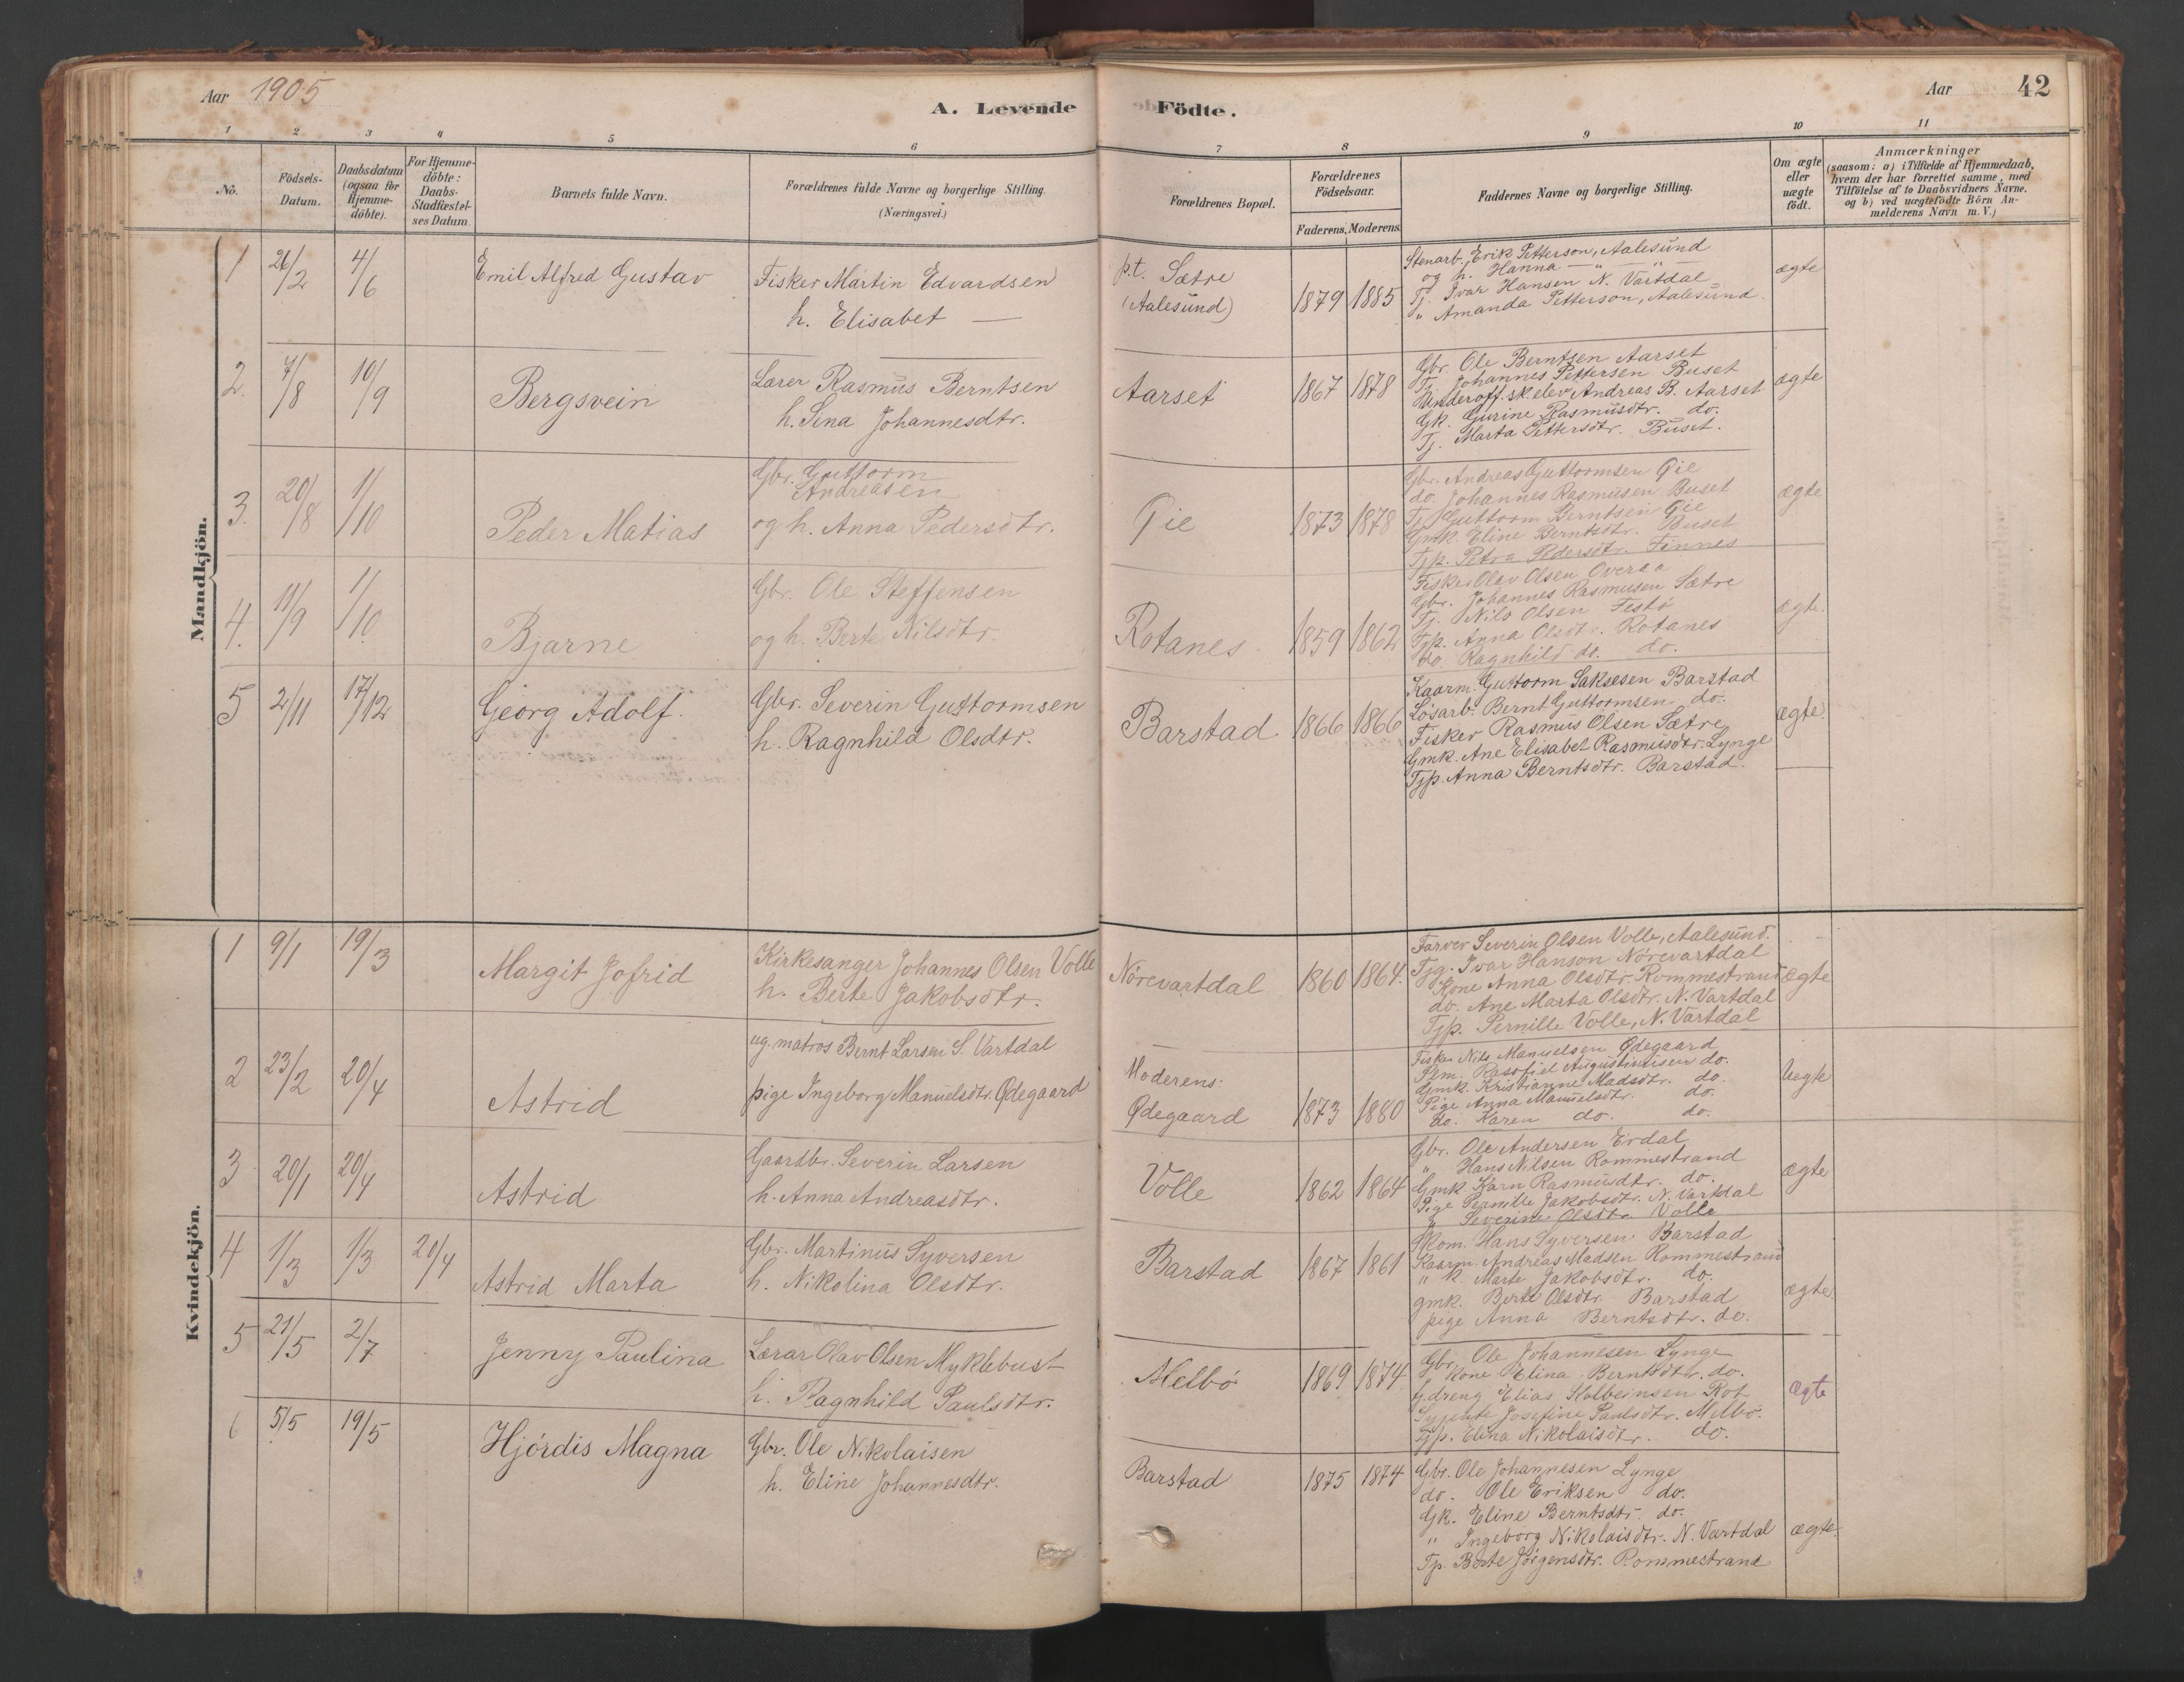 Aar 1905
A. Levende Födte.
Aar
42
1 2 3 4 5 6 7 8 9 10 11
No.
Födsels-Datum.
Daabsdatum (ogsaa for Hjemme-döbte).
For Hjemme-döbte: Daabs-Stadfæstel-ses Datum.
Barnets fulde Navn.
Forældrenes fulde Navne og borgerlige Stilling.
(Næringsvei.)
Forældrenes Bopæl.
Forældrenes Födselsaar.
Faderens. Moderens.
Faddernes Navne og borgerlige Stilling.
Om ægte eller uægte födt.
Anmærkninger
(saasom: a) i Tilfælde af Hjemmedaab,
hvem der har forrettet samme, med
Tilföielse af to Daabsvidners Navne.
og b) ved uægtefödte Börn An-
melderens Navn m. V.)
Mandkjön.
1 26/2 4/6 Emil Alfred Gustav
Fisker Martin Edvardsen
h. Elisabet —
p.t. Sætre
(Aalesund)
1879 1885
Stenarb. Erik Petterson, Aalesund
og h. Hanna — " — " —
Tj. Ivar Hansen N. Vartdal
" Amanda Petterson, Aalesund.
ægte
2. 7/8 10/9 Bergsvein
Lærer Rasmus Berntsen
h. Sina Johannesdtr.
Aarset
1867 1878
Gbr. Ole Berntsen Aarset
Tj. Johannes Pettersen Buset
Underoff. sk. elev Andreas B. Aarset
Gk. Gurine Rasmusdtr. do.
Tj. Marta Pettersdtr. Buset.
ægte
3. 20/8 1/10 Peder Matias
Gbr. Guttorm
Andreasen
og h. Anna Pedersdtr.
Gie
1873 1878
Gbr. Andreas Guttormsen Gie
do. Johannes Rasmusen Buset
Tj. Guttorm Berntsen Gie
Gmk. Eline Berntsdtr. Buset
Tjp. Petra Pedersdtr. Finnes
ægte
4. 11/9 1/10 Bjarne
Gbr. Ole Steffensen
og h. Berte Nilsdtr.
Rotanes
1859 1862
Fisker Olav Olsen Overaa
Gbr. Johannes Rasmusen Sætre
Tj. Nils Olsen Festö
Tjp. Anna Olsdtr. Rotanes
do. Ragnhild do. do.
ægte.
5 2/11 17/12 Georg Adolf.
Gbr. Severin Guttormsen
h. Ragnhild Olsdtr.
Barstad
1866 1866
Kaarm. Guttorm Saksesen Barstad
Løsarb. Bernt Guttormsen do.
Fisker Rasmus Olsen Sætre
Gmk. Ane Elisabet Rasmusdtr. Lynge
Tjp. Anna Berntsdtr. Barstad.
ægte.
Kvindekjön.
1 9/1 19/3 Margit Jofrid
Kirkesanger Johannes Olsen Volle
h. Berte Jakobsdtr.
Nörevartdal
1860 1864.
Farver Severin Olsen Volle, Aalesund.
Tjg. Ivar Hanson Nörevartdal
Kone Anna Olsdtr. Rommestrand
do. Ane Marta Olsdtr. N. Vartdal
Tjp. Pernille Volle, N. Vartdal
ægte
2 23/2 20/4 Astrid
ug. matros Bernt Larsen S. Vartdal
pige Ingeborg Manuelsdtr. Ødegaard
Moderens:
Ødegaard
1873 1880
Fisker Nils Manuelsen Ødegaard
Augustinusen do.
Gmk. Kristianne Madsdtr. do.
Pige Anna Manuelsdtr. do.
do. Karen do. do.
Uegte
3 20/1 20/4 Astrid
Gaardbr. Severin Larsen
h. Anna Andreasdtr.
Volle
1862 1864
Gbr. Ole Andersen Erdal
" Hans Nilsen Rommestrand
Gmk Karn Rasmusdtr. do.
Pige Pernille Jakobsdtr. N. Vartdal
" Severine Olsdtr. Volle
ægte
4 1/3 1/3 20/4 Astrid Marta
Gbr. Martinus Syversen
h. Nikolina Olsdtr.
Barstad
1867 1861
Hans Syversen Barstad
Kaarm. Andreas Madsen Rommestrand
" k. Marte Jakobsdtr. do.
gmk. Berte Olsdtr. Barstad
pige Anna Berntsdtr. do.
ægte.
5 21/5 2/7 Jenny Paulina
Lærar Olav Olsen Myklebust
h. Ragnhild Paulsdtr.
Melbö
1869 1874
Gbr. Ole Johannesen Lynge
kone Elina Berntsdtr. do.
G.dreng Elias Kolbeinsen Rot
Syjente Josefine Paulsdtr. Melbö.
Tjp. Elina Nikolaisdtr. do.
ægte
6 5/5 19/5 Hjördis Magna
Gbr. Ole Nikolaisen
h. Eline Johannesdtr.
Barstad
1875 1874
Gbr. Ole Johannesen Lynge
do. Ole Eriksen do.
Gk. Eline Berntsdtr. do.
" Ingeborg Nikolaisdtr. N. Vartdal
Tp. Berte Jörgensdtr. Rommestrand
ægte.